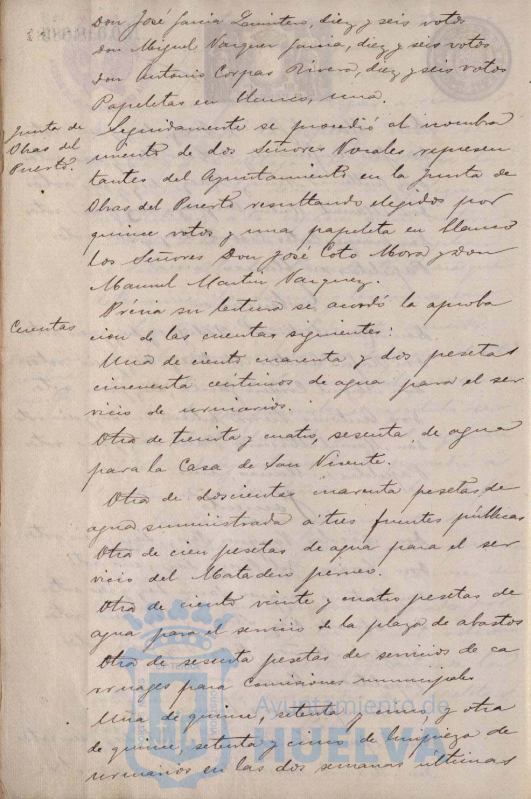 Don José Garcia Quintero, diez y seis votos
Don Miguel Vazquez Garcia, diez y seis votos
Don Antonio Corpas Rivera, diez y seis votos
Papeletas en blanco, una.
Junta de Obras del Puerto.
Seguidamente se procedió al nombra
miento de dos Señores Vocales represen
tantes del Ayuntamiento en la Junta de
Obras del Puerto resultando elegidos por
quince votos y una papeleta en blanco
los Señores Don José Coto Mora y don
Manuel Martin Vazquez.
Cuentas
Prévia su lectura se acordó la aproba
cion de las cuentas siguientes:
Una de ciento cuarenta y dos pesetas
cincuenta céntimos de agua para el ser
vicio de urinarios.
Otra de treinta y cuatro, sesenta, de agua
para la Casa de San Vicente.
Otra de doscientas cuarenta pesetas de
agua suministrada á tres fuentes públicas
Otra de cien pesetas de agua para el ser
vicio del Matadero perneo.
Otra de ciento veinte y cuatro pesetas de
agua para el servicio de la plaza de abastos
Otra de sesenta pesetas de servicios de ca
rruages para Comisiones municipales
Una de quince, setenta y cinco, y otra
de quince, setenta y cinco de limpieza de
urinarios en las dos semanas últimas
Ayuntamiento de
HUELVA